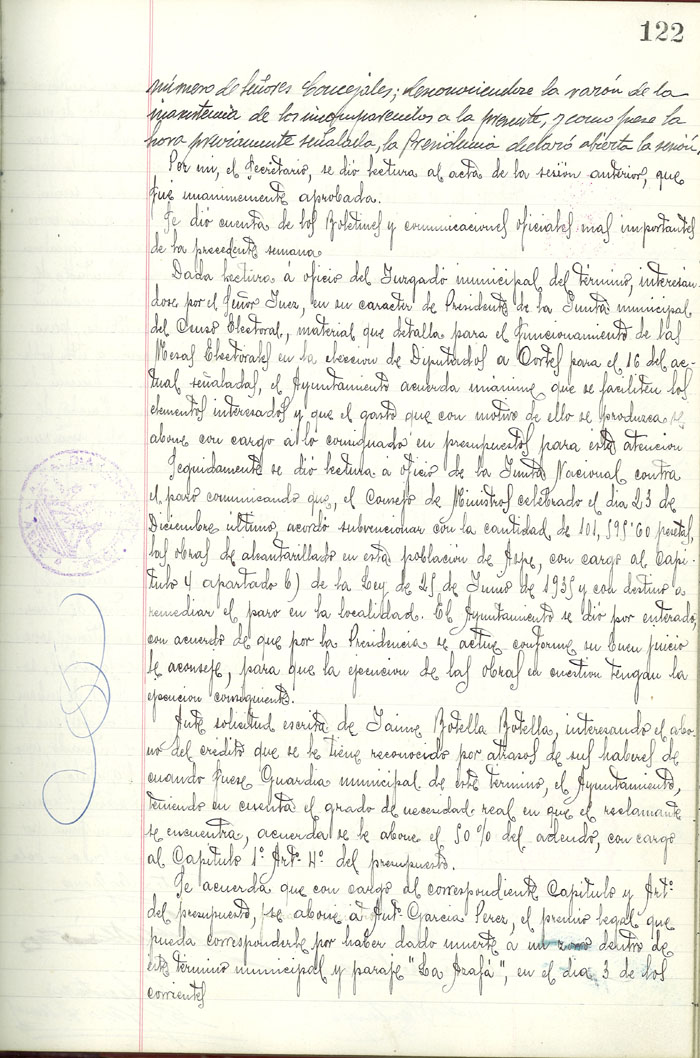 122
número de Señores Concejales; desconociendose la razón de la
inasistencia de los incomparecidos a la presente, y como fuese la
hora previamente señalada, la Presidencia declaró abierta la sesión,
Por mi, el Secretario, se dió lectura al acta de la sesión anterior, que
fué unanimemente aprobada.
Se dió cuenta de los Boletines y comunicaciones oficiales mas importantes
de la precedente semana
Dada lectura á oficio del Juzgado municipal del término, interesan-
dose por el Señor Juez, en su caracter de Presidente de la Junta municipal
del Censo Electoral, material que detalla para el funcionamiento de las
Mesas Electorales en la eleccion de Diputados a Cortes para el 16 del ac-
tual señaladas, el Ayuntamiento acuerda unánime que se faciliten los
elementos interesados y que el gasto que con motivo de ello se produzca se
abone con cargo a lo consignado en presupuestos para ésta atencion
Seguidamente se dió lectura a oficio de la Junta Nacional contra
el paro comunicando que, el Consejo de Ministros celebrado el dia 23 de
Diciembre último, acordó subvencionar con la cantidad de 101,595'60 pesetas,
las obras de alcantarillado en esta poblacion de Aspe, con cargo al Capi-
tulo 4 apartado b) de la Ley de 25 de Junio de 1935 y con destino a
remediar el paro en la localidad. El Ayuntamiento se dió por enterado,
con acuerdo de que por la Presidencia se actue conforme su buen juicio
le aconseje, para que la ejecucion de las obras en cuestion tengan la
ejecucion consiguiente.
Ante solicitud escrita de Jaime Botella Botella, interesando el abo-
no del crédito que se le tiene reconocido por atrasos de sus haberes de
cuando fuese Guardia municipal de este termino, el Ayuntamiento,
teniendo en cuenta el grado de necesidad real en que el reclamante
se encuentra, acuerda se le abone el 50% del adeudo, con cargo
al Capitulo 1º Artº 4º del presupuesto.
Se acuerda que con cargo al correspondiente Capitulo y Artº
del presupuesto, se abone a Antº Garcia Perez, el premio legal que
pueda corresponderle por haber dado muerte a un zorro dentro de
éste término municipal y paraje "La Azafá", en el dia 3 de los
corrientes